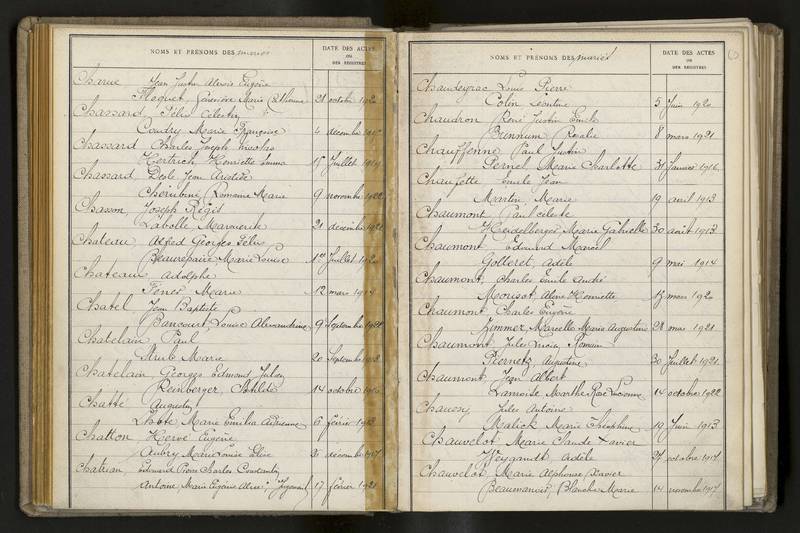 NOMS ET PRÉNOMS DES mariés
DATE DES ACTES
OU
DES REGISTRES
Charue Jean Justin Alexis Eugène
Floquet, Geneviève Marie 21 octobre 192
Chassard Félix Célestin
Coudry Marie Françoise 4 décembre
Chassard Charles Joseph Nicolas
Hertrich Henriette Emma 15 Juillet 1919
Chassard Jean Aristide
Cherubini, Romaine Marie 9 novembre 1922
Chasson, Joseph Régis
Labolle Marguerite 21 décembre 1921
Chateau, Alfred Georges Félix
Beaurepaire Marie Louise 1er Juillet 192
Chateau Adolphe
Marie 12 mars 1914
Chatel Jean Baptiste
Bancourt, Louise Alexandrine 9 Septembre 1922
Chatelain Paul
Marie 20 Septembre
Chatelain, Georges Edmond
Reinberger, 14 octobre
Chatté Augustin
Marie Emilia 6 février 1913
Chatton Hervé Eugène
Aubry Marie Louise 26 décembre 1917
Chatrian Edouard Charles Constantin
Antoine Marie Eugénie 17 février 1921
NOMS ET PRÉNOMS DES mariés
DATE DES ACTES
OU
DES REGISTRES
Chaudeyrac Louis Pierre
Colin Léontine 5 Juin 1920
Chaudron René Justin Emile
Rosalie 8 mars 1921
Chauffenne Paul Justin
Pernel Marie Charlotte 31 Janvier 1916
Chaufette Emile Jean
Martin Marie 19 avril 1913
Chaumont Paul Céleste
Heidelberger, Marie Gabrielle 30 août 1913
Chaumont, Edouard Marcel
Golleret, Adèle 9 mai 1914
Chaumont, Charles Emile André
Morisot, Aline Henriette 17 mars 1920
Chaumont Charles Eugène
Zimmer, Marcelle Marie Augustine 28 mai 1921
Chaumont Jules Lucien Romain
Augustine 30 Juillet 1921
Chaumont, Jean Albert
Lamoise Marthe Rose Lucienne 14 octobre 1922
Chaussy Jules Antoine
Malick Marie Joséphine 19 Juin 1913
Chauvelot Marie Claude Xavier
Weygandt Adèle 27 octobre 1917
Chauvelot, Marie Alphonse Xavier
Beaumanoir, Blanche Marie 14 novembre 1917